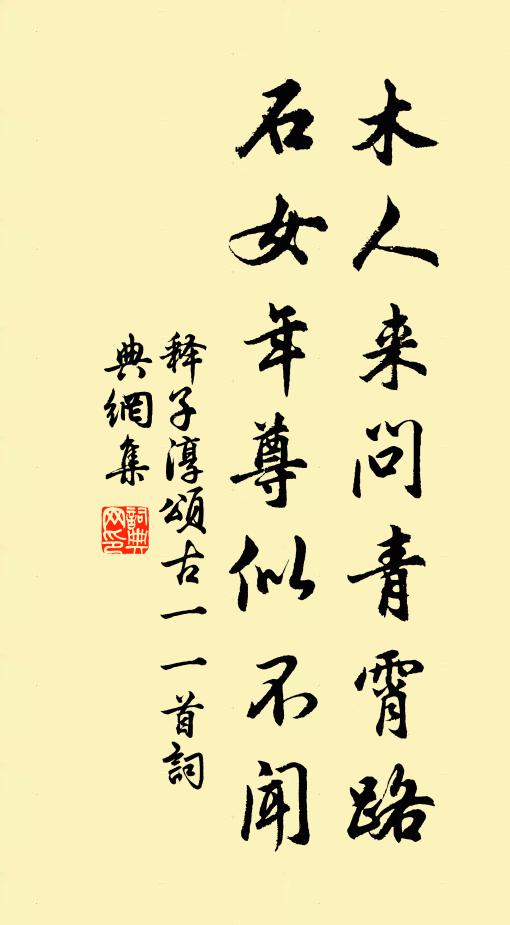 木人来问青霄路
石女年尊似不闻
释子淳頌古一一首詞
典網集
詞典
网印